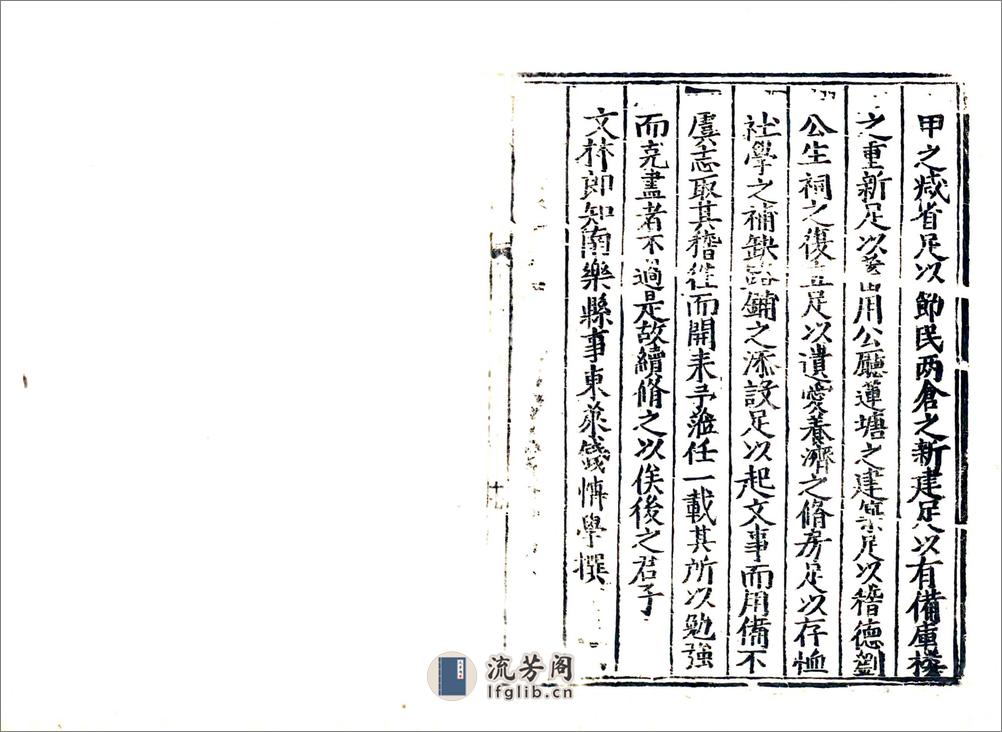 甲之减省足以節民两倉之新建足以有備庫楼
之重新足以 用公廳蓮塘之建 足以稽德劉
公生祠之復 足以遺愛養濟之脩房足以存恤
社學之補缺路鋪之添設足以起文事而用備不
虞志取其稽徃而開来予蒞任一載其所以勉強
而克盡者不過是故續脩之以俟後之君子
文林郎知南樂縣事東萊錢愽學撰
十九
流芳阁
lfglib.cn